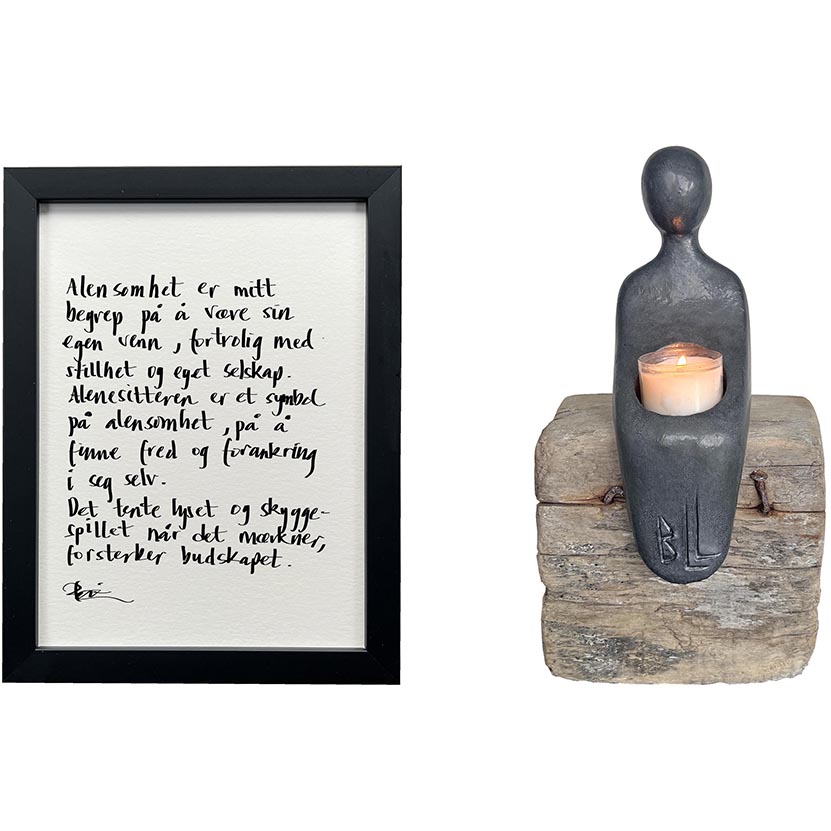 Alensomhet er mitt
begrep på å være sin
egen venn, fortrolig med
stillhet og eget selskap.
Alenesitteren er et symbol
på alensomhet, på å
finne fred og forankring
i seg selv.
Det tente lyset og skygge-
spillet når det mørkner,
forsterker budskapet.
BLL